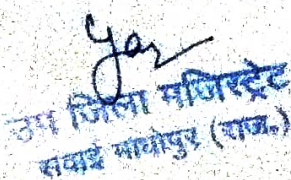 उप जिला मजिस्ट्रेट
सवाई माधोपुर (राज.)